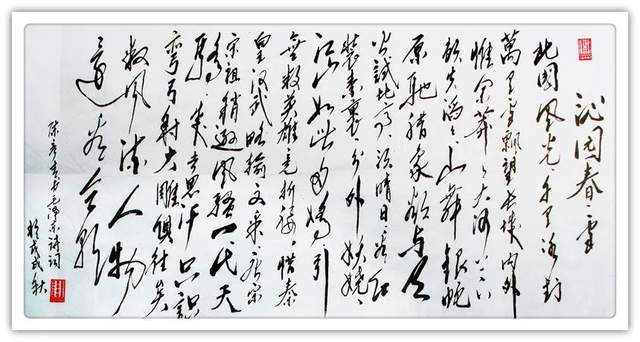 沁园春雪
北国风光千里冰封
萬里雪飘望长城内外
惟余莽々大河上下
顿失滔々山舞银蛇
原驰腊象欲与天
公试比高须晴日看红
装素裹分外妖娆
江山如此多娇引
無数英雄竞折腰惜秦
皇汉武略输文采唐宗
宋祖稍逊风骚一代天
骄成吉思汗只识
弯弓射大雕俱往矣
数风流人物
还看今朝
陈书毛泽东诗词
於戊戌秋